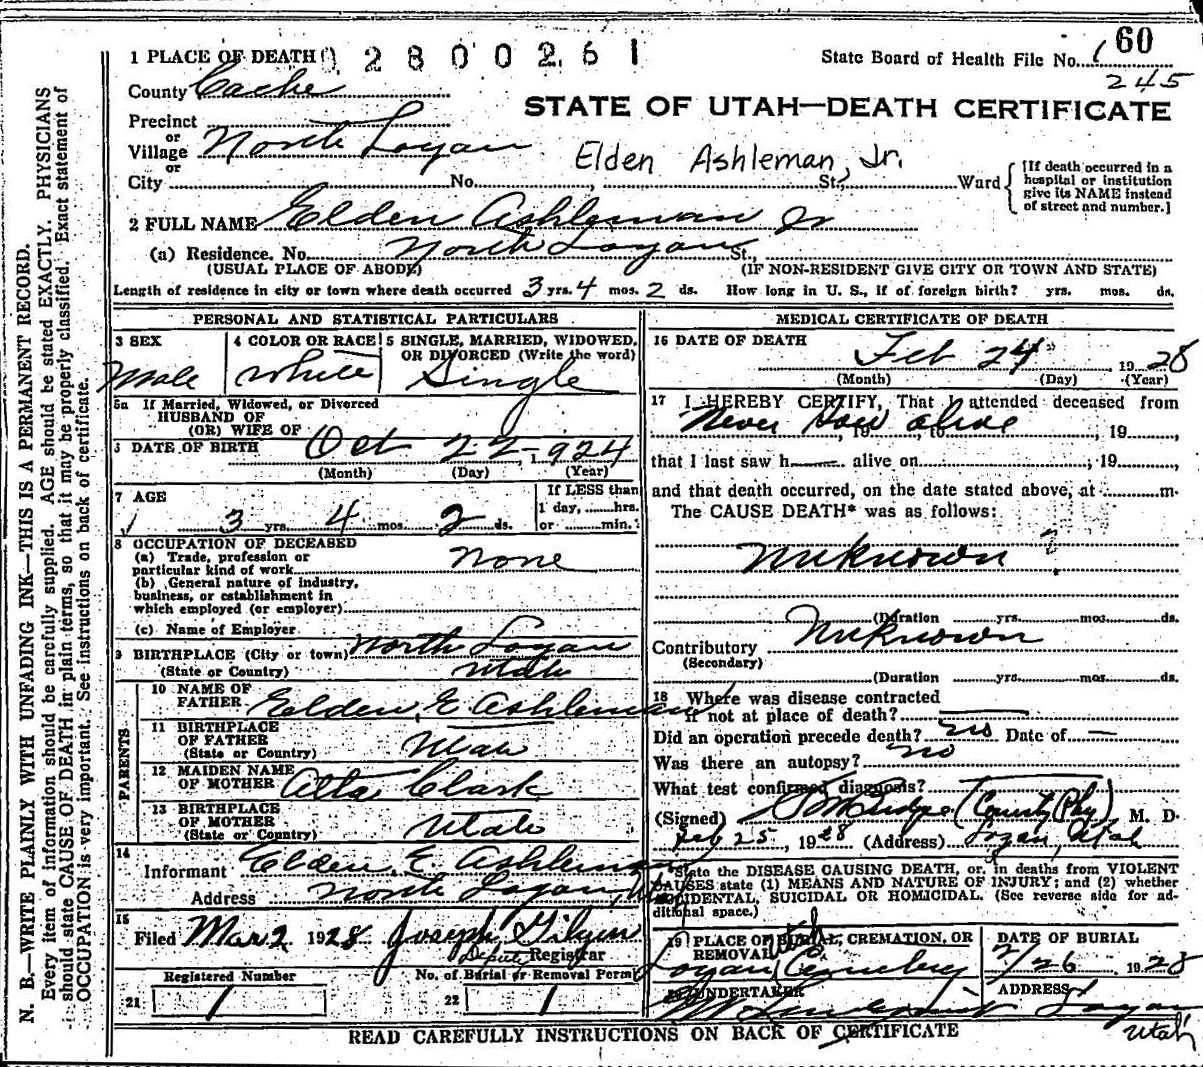 1 PLACE OF DEATH 02800261
State Board of Health File No. 60
245
County Cache
STATE OF UTAH—DEATH CERTIFICATE
Precinct
or
Village North Logan
or
Elden Ashleman, Jr.
City No. , St., Ward
[If death occurred in a
hospital or institution
give its NAME instead
of street and number.]
2 FULL NAME Elden Ashleman Jr
(a) Residence. No. North Logan St.,
(USUAL PLACE OF ABODE) (IF NON-RESIDENT GIVE CITY OR TOWN AND STATE)
Length of residence in city or town where death occurred 3 yrs. 4 mos. 2 ds. How long in U. S., if of foreign birth? yrs. mos. ds.
PERSONAL AND STATISTICAL PARTICULARS
3 SEX
Male
4 COLOR OR RACE
White
5 SINGLE, MARRIED, WIDOWED,
OR DIVORCED (Write the word)
Single
5a If Married, Widowed, or Divorced
HUSBAND OF
(OR) WIFE OF
6 DATE OF BIRTH Oct 22-1924
(Month) (Day) (Year)
7 AGE
3 yrs. 4 mos. 2 ds.
If LESS than
1 day, hrs.
or min.
8 OCCUPATION OF DECEASED
(a) Trade, profession or
particular kind of work None
(b) General nature of industry,
business, or establishment in
which employed (or employer)
(c) Name of Employer
9 BIRTHPLACE (City or town) North Logan
(State or Country) Utah
PARENTS
10 NAME OF
FATHER Elden E Ashleman
11 BIRTHPLACE
OF FATHER
(State or Country) Utah
12 MAIDEN NAME
OF MOTHER Alta Clark
13 BIRTHPLACE
OF MOTHER
(State or Country) Utah
14
Informant Elden E. Ashleman
Address North Logan, Ut
15
Filed Mar 2 1928 Joseph
Deputy Registrar
Registered Number No. of Burial or Removal Permit
21 1 22 1
MEDICAL CERTIFICATE OF DEATH
16 DATE OF DEATH
Feb 24 1928
(Month) (Day) (Year)
17 I HEREBY CERTIFY, That I attended deceased from
Never Saw alive , 19 , to , 19 ,
that I last saw h alive on ; 19 ,
and that death occurred, on the date stated above, at m.
The CAUSE DEATH* was as follows:
Unknown ?
(Duration yrs. mos. ds.
Contributory Unknown
(Secondary)
(Duration yrs. mos. ds.
18 Where was disease contracted
if not at place of death? —
Did an operation precede death? no Date of —
Was there an autopsy? no
What test confirmed diagnosis?
(Signed) (County Phy) M. D.
Feb 25, 1928 (Address) Logan, Utah
*State the DISEASE CAUSING DEATH, or in deaths from VIOLENT
CAUSES state (1) MEANS AND NATURE OF INJURY; and (2) whether
ACCIDENTAL, SUICIDAL OR HOMICIDAL. (See reverse side for ad-
ditional space.)
19 PLACE OF BURIAL, CREMATION, OR
REMOVAL Utah
Logan Cemetery
DATE OF BURIAL
2/26 1928
20 UNDERTAKER
ADDRESS
Logan
Utah
READ CAREFULLY INSTRUCTIONS ON BACK OF CERTIFICATE
N. B.—WRITE PLAINLY WITH UNFADING INK—THIS IS A PERMANENT RECORD.
Every item of information should be carefully supplied. AGE should be stated EXACTLY. PHYSICIANS
should state CAUSE OF DEATH in plain terms, so that it may be properly classified. Exact statement of
OCCUPATION is very important. See instructions on back of certificate.